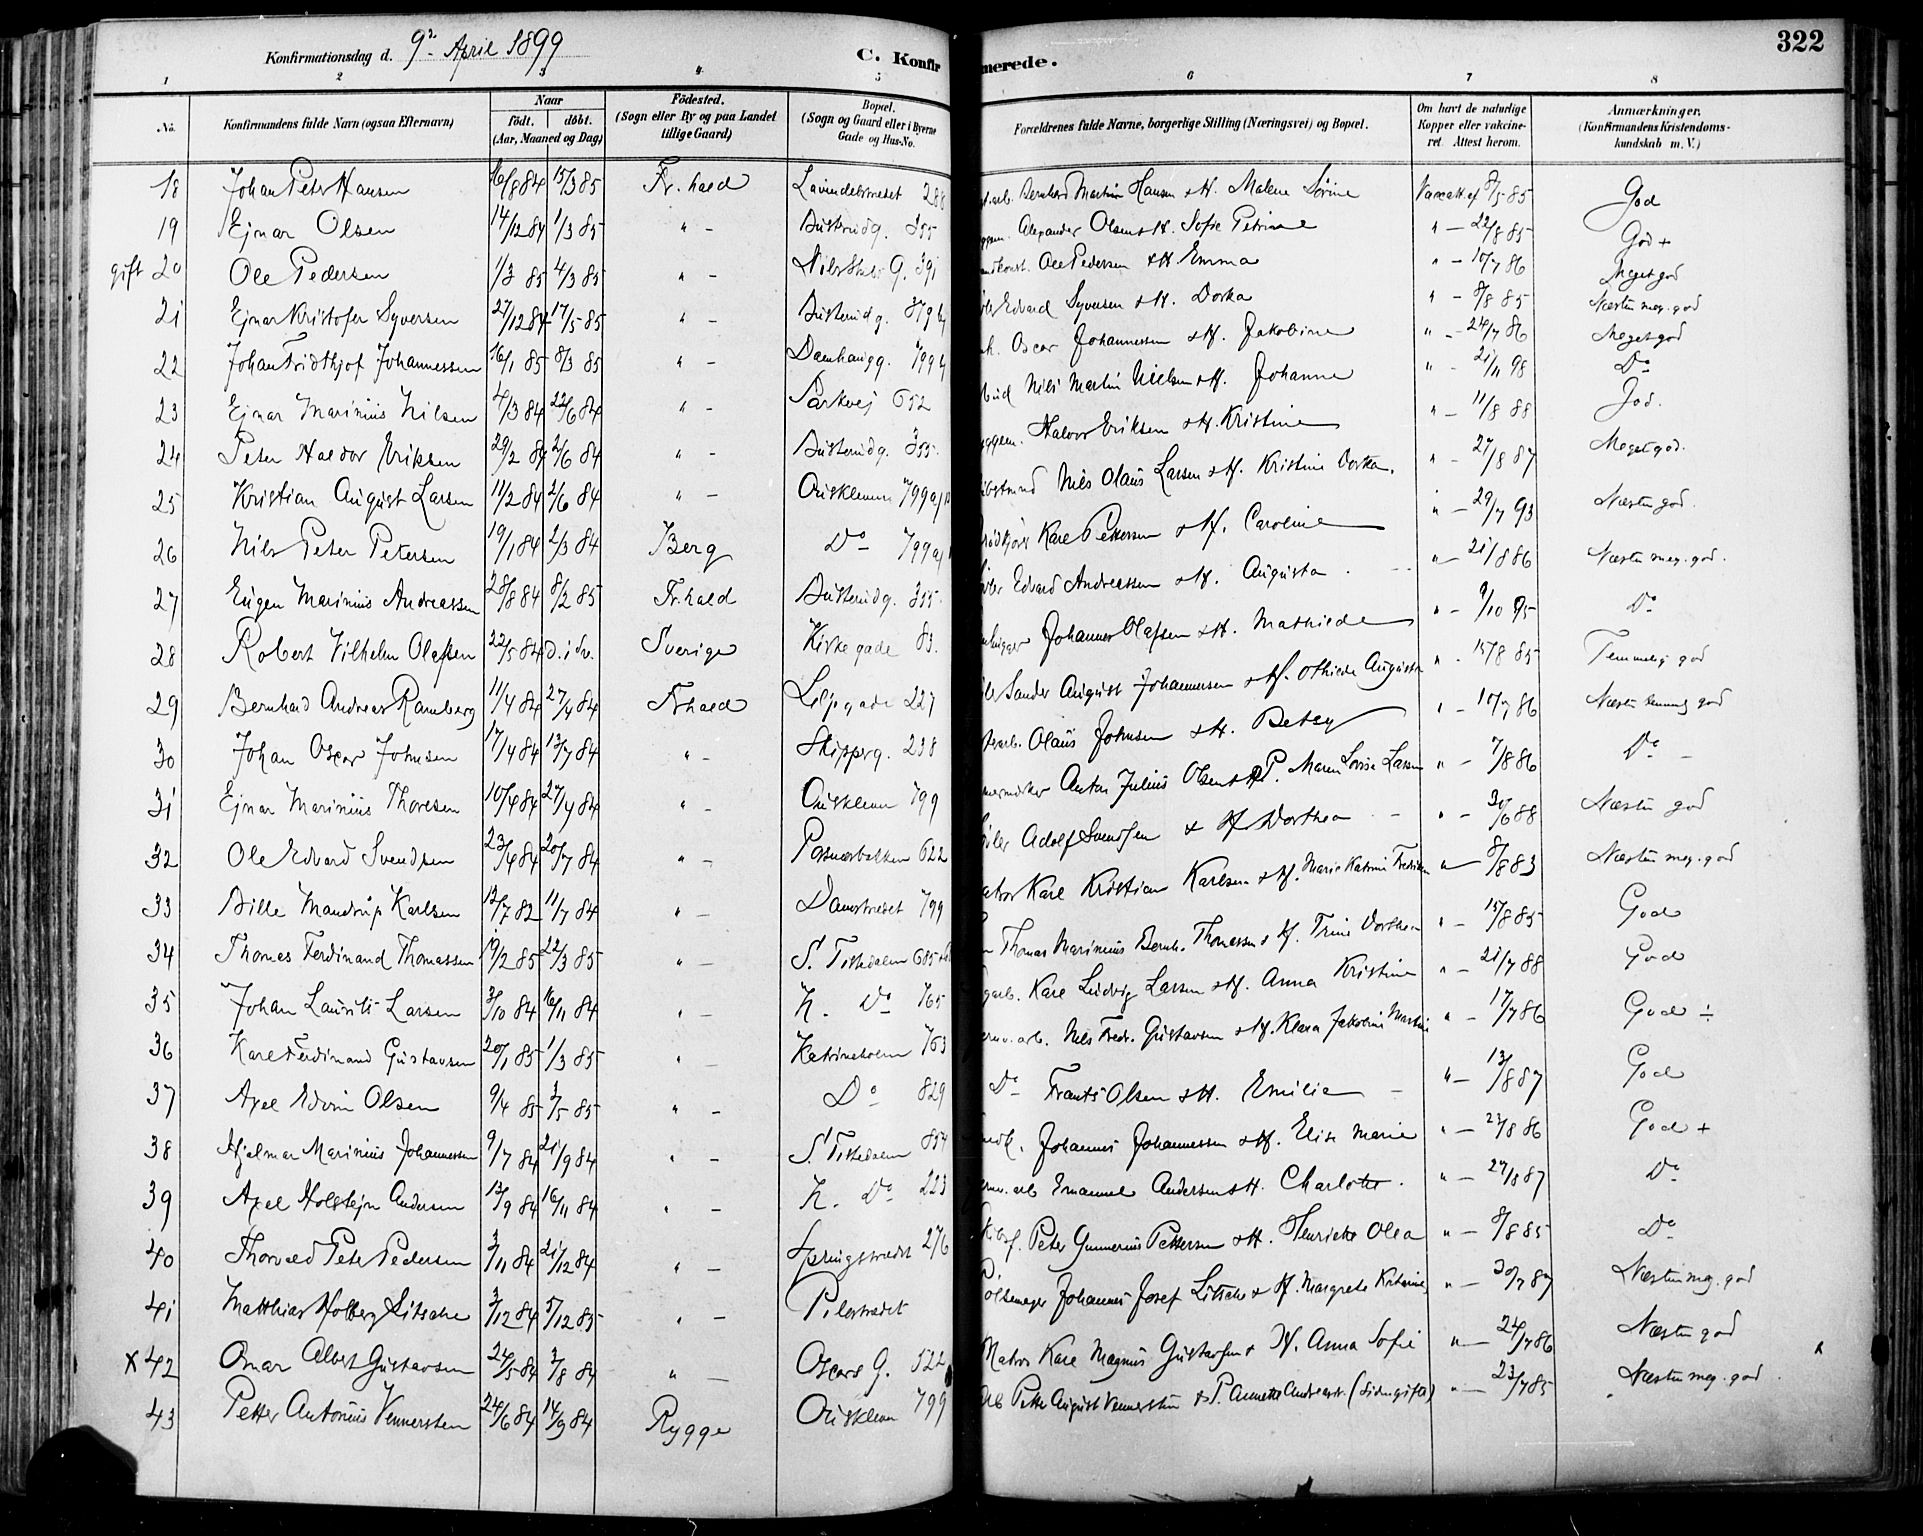 Konfirmationsdag d. 9de April 1899 C. Konfirmerede. 322
1 2 3 4 5 6 7 8
No. Konfirmandens fulde Navn (ogsaa Efternavn) Naar födt. döbt. (Aar, Maaned og Dag) Födested. (Sogn eller By og paa Landet tillige Gaard) Bopæl. (Sogn og Gaard eller i Byerne Gade og Hus-No. Forældrenes fulde Navne, borgerlige Stilling (Næringsvei) og Bopæl. Om havt de naturlige Kopper eller vakcineret. Attest herom. Anmærkninger. (Konfirmandens Kristendomskundskab m. V.)
18 Johan Peter Hansen 16/8 84 15/3 85 Fr.hald Lavindelstrædet 288 Bernhard Martin Hansen & H. Malene Sörine Vaccatt. af 8/5 85 God
19 Ejnar Olsen 14/12 84 1/3 85 " - Busterudg. 355 Alexander Olsen & H. Sofie Petrine " - 22/8 85 God +
gift 20 Ole Pedersen 1/3 85 4/3 85 " - Nils Stubs G. 391 Ole Pedersen & H. Emma " - 10/7 86 Meget god
21 Ejnar Kristofer Syversen 27/12 84 17/5 85 " - Busterudg. Edvard Syversen & H. Dorthea " - 8/8 85 Næsten meg. god
22 Johan Fridthjof Johannessen 16/1 85 8/3 85 " - Damhaugg. 799 b Oscar Johannessen & H. Jakobine " - 24/7 86 Meget god
23 Ejnar Marinius Nilsen 4/3 84 22/6 84 " - Parkvej 652 Nils Martin Nielsen & H. Johanne " - 21/11 98 Do
24 Peter Haldor Eriksen 29/2 84 2/6 84 " - Busterudg. 355. Halvor Eriksen & H. Kristine " - 11/8 88 God.
25 Kristian August Larsen 11/2 84 2/6 84 " - Ouskleven 799 Nils Olaus Larsen & H. Kristine Dorthea. " - 27/8 87 Meget god.
26 Nils Peter Petersen 19/1 84 2/3 84 Berg Do 799 Karl Pettersen & H. Caroline " - 29/7 93 Næsten god.
27 Eugen Marinius Andreassen 28/8 84 8/2 85 Fr.hald Busterudg. 355. Edvard Andreassen & H. Augusta " - 21/8 86 Næsten meg. god.
28 Robert Vilhelm Olafsen 22/5 84 Sverige Kirkegade 83. Johannes Olafsen & H. Mathilde " - 9/10 95 Do
29 Bernhard Andreas Ramberg 11/4 84 27/4 84 Frhald Liljegade 227 Sander August Johannesen & H. Othilde Augusta " - 15/8 85 Temmelig god
30 Johan Oscar Johnsen 17/4 84 13/7 84 " - Skipperg. 238 Olaus Johnsen & H. Betsy " - 10/7 86 Næsten temmelig god
31 Ejnar Marinius Thoresen 10/4 84 27/4 84 " - Ouskleven 799 Anton Julius Olsen & P. Maren Lovise Larsen " - 7/8 86 Do -
32 Ole Edvard Svendsen 23/4 84 20/7 84 " - Posnærbakken 622 Adolf Svendsen & H. Dorthea - " - 30/6 88 Næsten god
33 Bille Mandrup Karlsen 12/7 82 11/7 84 " - Damstrædet 799 Karl Kristian Karlsen & H. Marie Katrine " - 8/8 83 Næsten meg. god
34 Thomas Ferdinand Thomassen 19/2 85 22/3 85 " - S. Tistedalen 685 Thomas Marinius Bernh. Thomassen & H. Trine Dorthea " - 15/8 85 God
35 Johan Laurits Larsen 3/10 84 16/11 84 " - N. Do 765 Karl Ludvig Larsen & H. Anna Kristine " - 21/7 88 God
36 Karl Ferdinand Gustavsen 20/1 85 1/3 85 " - Katrineholm 763 Nils Fredr. Gustavsen & H. Klara Jakobine " - 17/7 86 God ÷
37 Axel Edvin Olsen 9/4 85 3/5 85 " - Do 829 Do Frants Olsen & H. Emilie - " - 13/8 87 God
38 Hjalmar Marinius Johannessen 9/7 84 21/9 84 " - S. Tistedalen 854 Johannes Johannessen & H. Elise Marie " - 23/8 86 God +
39 Axel Holstejn Andersen 13/9 84 16/11 84 " - N. Do 223 Emanuel Andersen & H. Charlotte. " - 27/8 87 Do
40 Thorvald Peter Pedersen 3/11 84 21/12 84 " - Springstrædet 276 Peter Gunnerius Pettersen & H. Henriette Olea " - 8/8 85 Do
41 Matthias Holberg Litsche 3/12 84 5/12 85 " - Pilestrædet Pölsemager Johannes Josef Litsche & H. Margrete Katrine " - 30/7 87 Næsten meg. god
x 42 Omar Albert Gustavsen 24/5 84 3/8 84 " - Oscars G. 522 Matros Karl Magnus Gustavsen & H. Anna Sofie " - 24/7 86 Næsten god
43 Petter Antonius Vennersten 24/6 84 14/9 84 Rygge Ouskleven 799 Arb. Petter August Vennersten & P. Annette Andreasd. (siden gifte) " - 23/7 85 Næsten meg. god